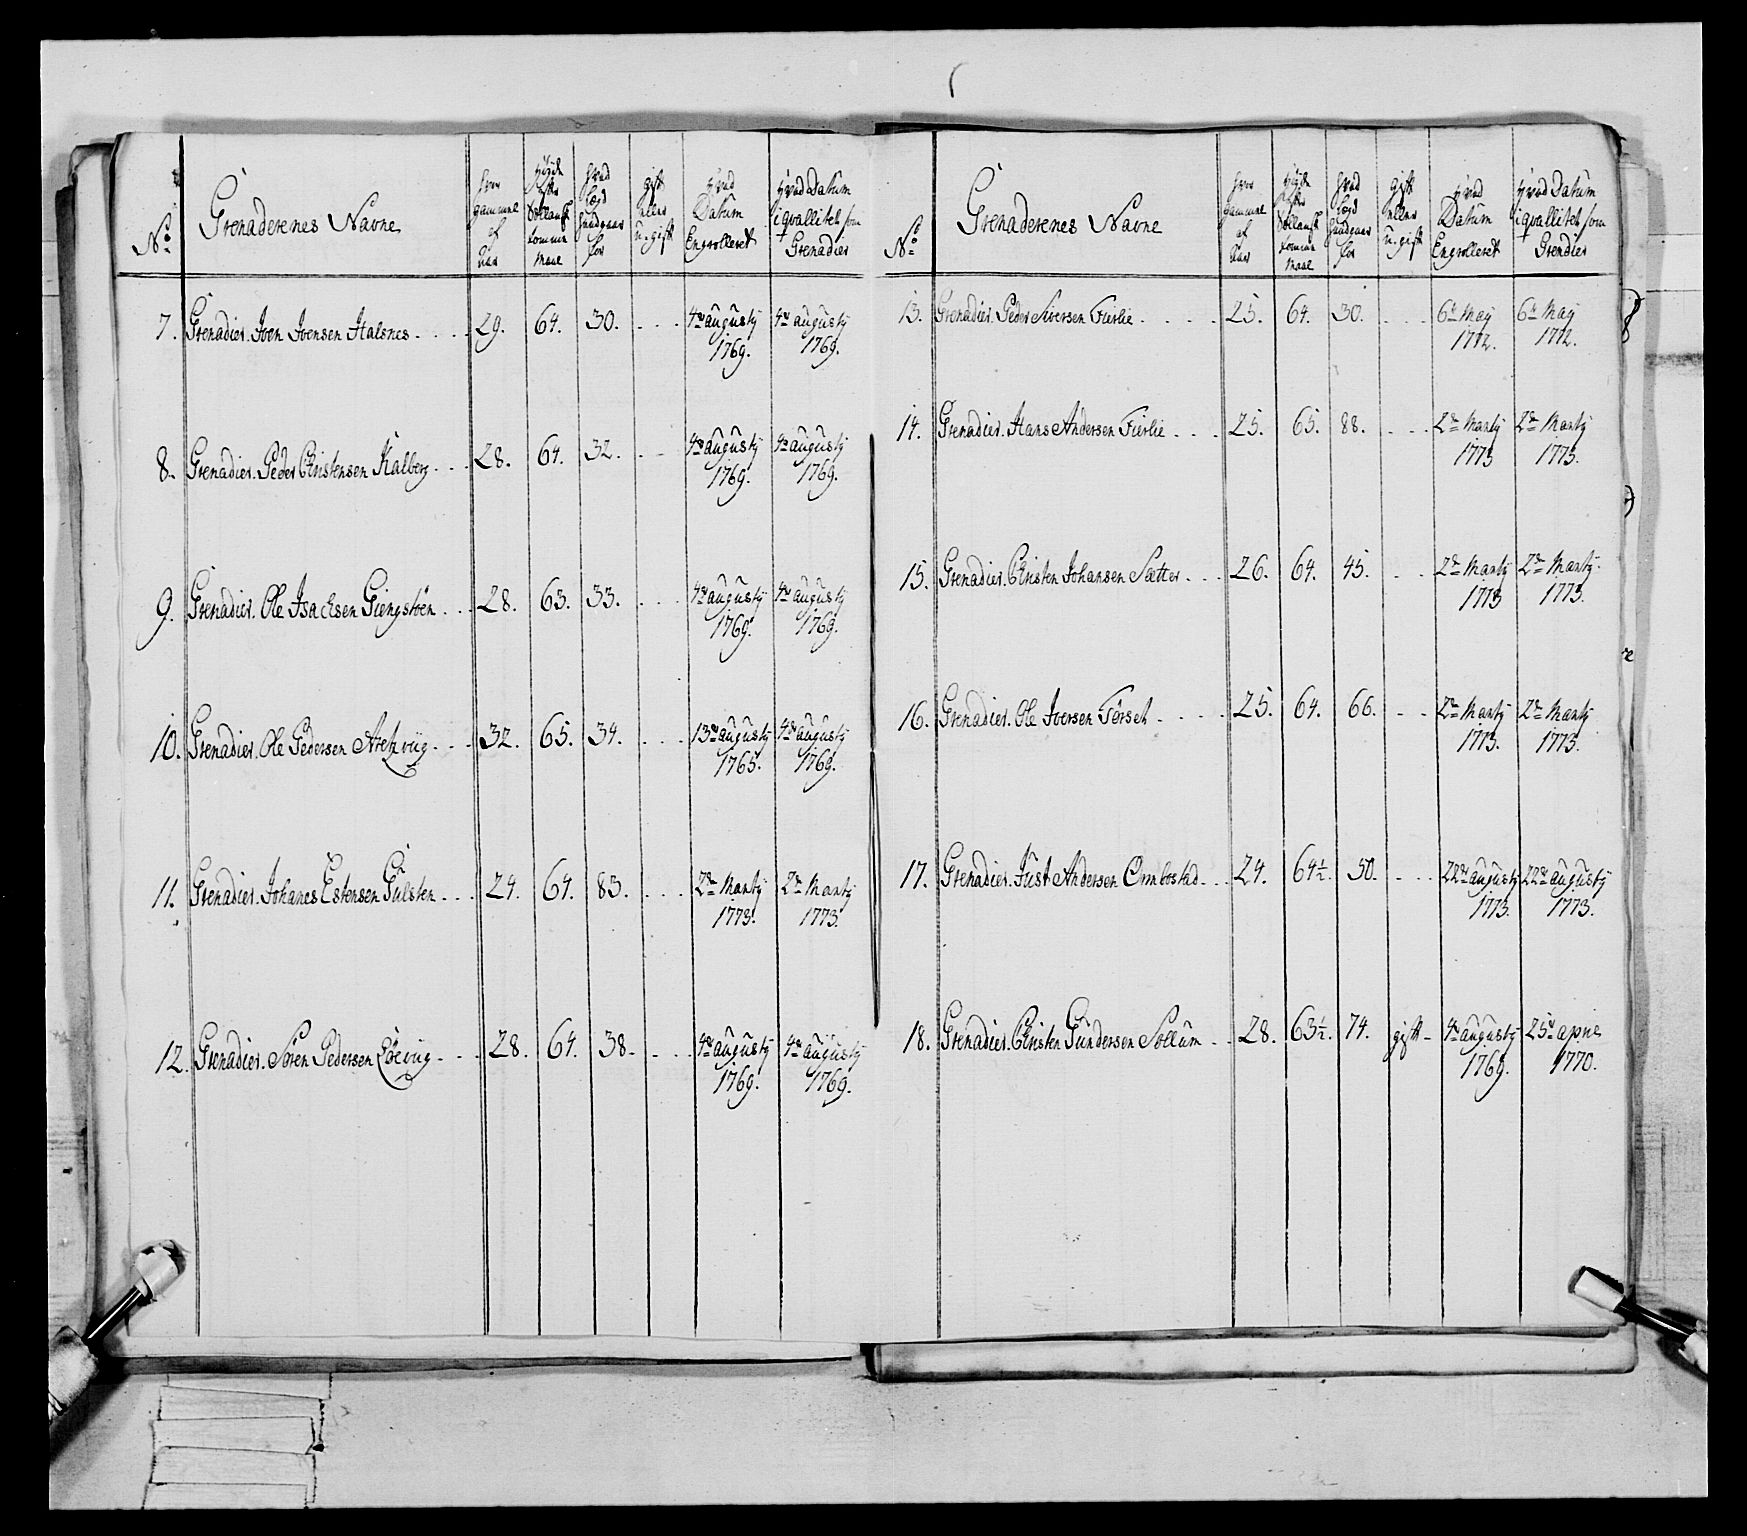 No.
Grenaderenes Navne
hvor gammel af Aar
Høyde efter Sollansk tomme Maal
hvad Lægd hand gaar for
gift eller u-gift
hvad Datum Enrolleret
hvad Datum i qvallitet som Grenadier
7. Grenadier. Iven Ivensen Halsnes 29. 64. 30. 4de augusty 1769. 4de augusty 1769.
8. Grenadier. Peder Christensen Kalberg 28. 64. 32. 4de augusty 1769. 4de augusty 1769.
9. Grenadier. Ole Isachsen Giengstøen 28. 63. 33. 4de augusty 1769. 4de augusty 1769.
10. Grenadier. Ole Pedersen 32. 65. 34. 13de augusty 1765. 4de augusty 1769.
11. Grenadier. Johanes Estensen Gulsten 24. 64. 83. 2de Marty 1773. 2de Marty 1773.
12. Grenadier. Søren Pedersen 28. 64. 38. 4de augusty 1769. 4de augusty 1769.
No.
Grenaderenes Navne
hvor gammel af Aar
Høyde efter Sollansk tomme Maal
hvad Lægd hand gaar for
gift eller u-gift
hvad Datum Engrolleret
hvad Datum i qvallitet som Grendier
13. Grenadier. Peder Siversen Fierlie 25. 64. 30. 6te May 1772. 6te May 1772.
14. Grenadier. Hans Andersen Fierlie 25. 65. 88. 2de Marty 1773 2de Marty 1773.
15. Grenadier. Christen Johansen Sætter 26. 64. 45. 2de Marty 1773 2de Marty 1773.
16. Grenadier. Ole Iversen Førset 25. 64. 66. 2de Marty 1773. 2de Marty 1773.
17. Grenadier. Just Andersen Ombostad 24. 64½. 50. 22de augusty 1773. 22de augusty 1773.
18. Grenadier. Christen Gundersen Sollum 28. 63½. 74. gift 4de augusty 1769. 25de aprie 1770.